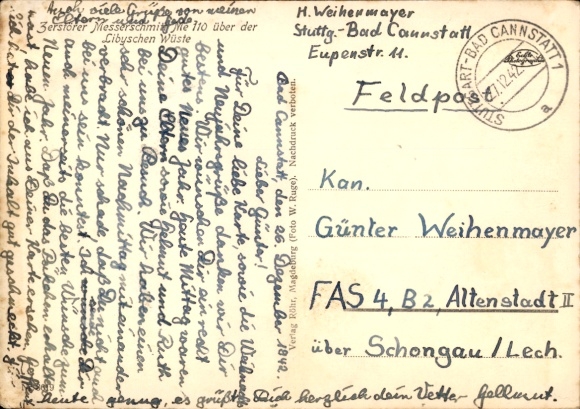 Zerstörer Messerschmitt Me 110 über der
Libyschen Wüste
H. Weihenmayer
Stuttg.-Bad Cannstatt
Eupenstr. 11.
STUTTGART-BAD CANNSTATT 1
27.12.42
a
Feldpost
Kan.
Günter Weihenmayer
FAS 4, B2, Altenstadt II
über Schongau/Lech.
Verlag Röhr, Magdeburg (Foto W. Ruge). Nachdruck verboten.
Bad Cannstatt, den 26. Dezember 1942.
Lieber Günter!
Für Deine liebe Karte, sowie die Weihnachts
und Neujahrsgrüße danken wir Dir
bestens. Wir wünschen Dir ein recht
gutes Neues Jahr. Heute Mittag waren
Deine Eltern sowie Helmut und Ruth
bei uns zu Besuch. Wir haben einen
sehr schönen Nachmittag miteinander
verbracht. Nur schade, daß Du nicht auch
bei uns sein konntest. Ich
auch meinerseits die besten Wünsche zum
Neuen Jahr. Daß Du das Päckchen erhalten
hast, habe ich aus Deiner Karte ersehen,
dir der Inhalt gut geschmeckt
heute genug, es grüßt Dich herzlich dein Vetter Hellmut.
Auch viele Grüße von meinen
Eltern und